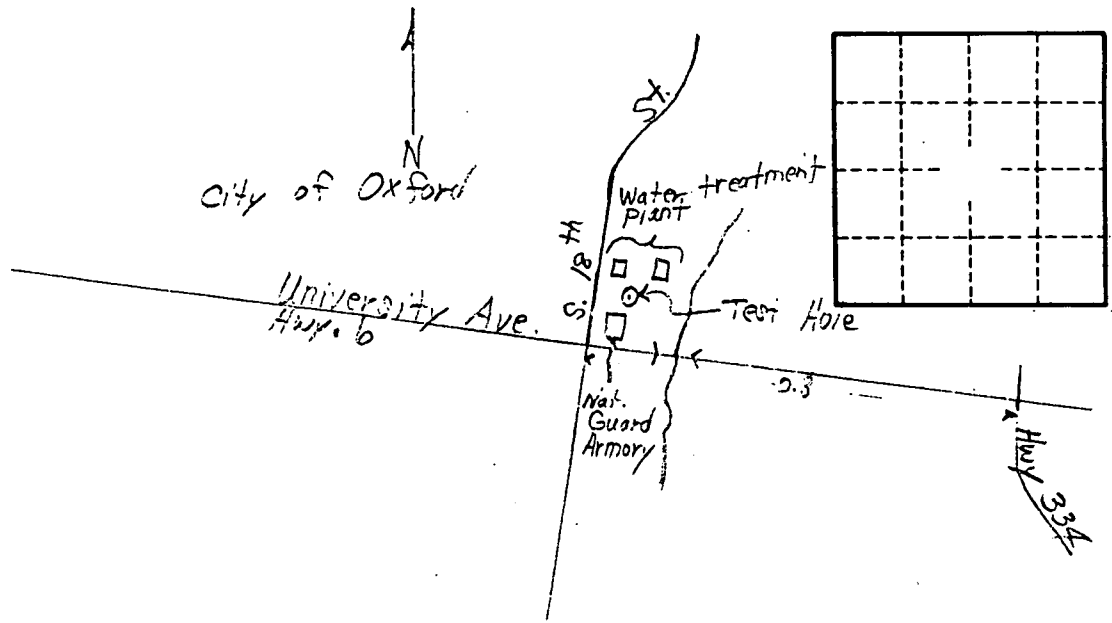 N
City of Oxford
St.
S. 18th
Water treatment
Plant
University Ave.
Hwy. 6
Test Hole
Nat.
Guard
Armory
Hwy 334